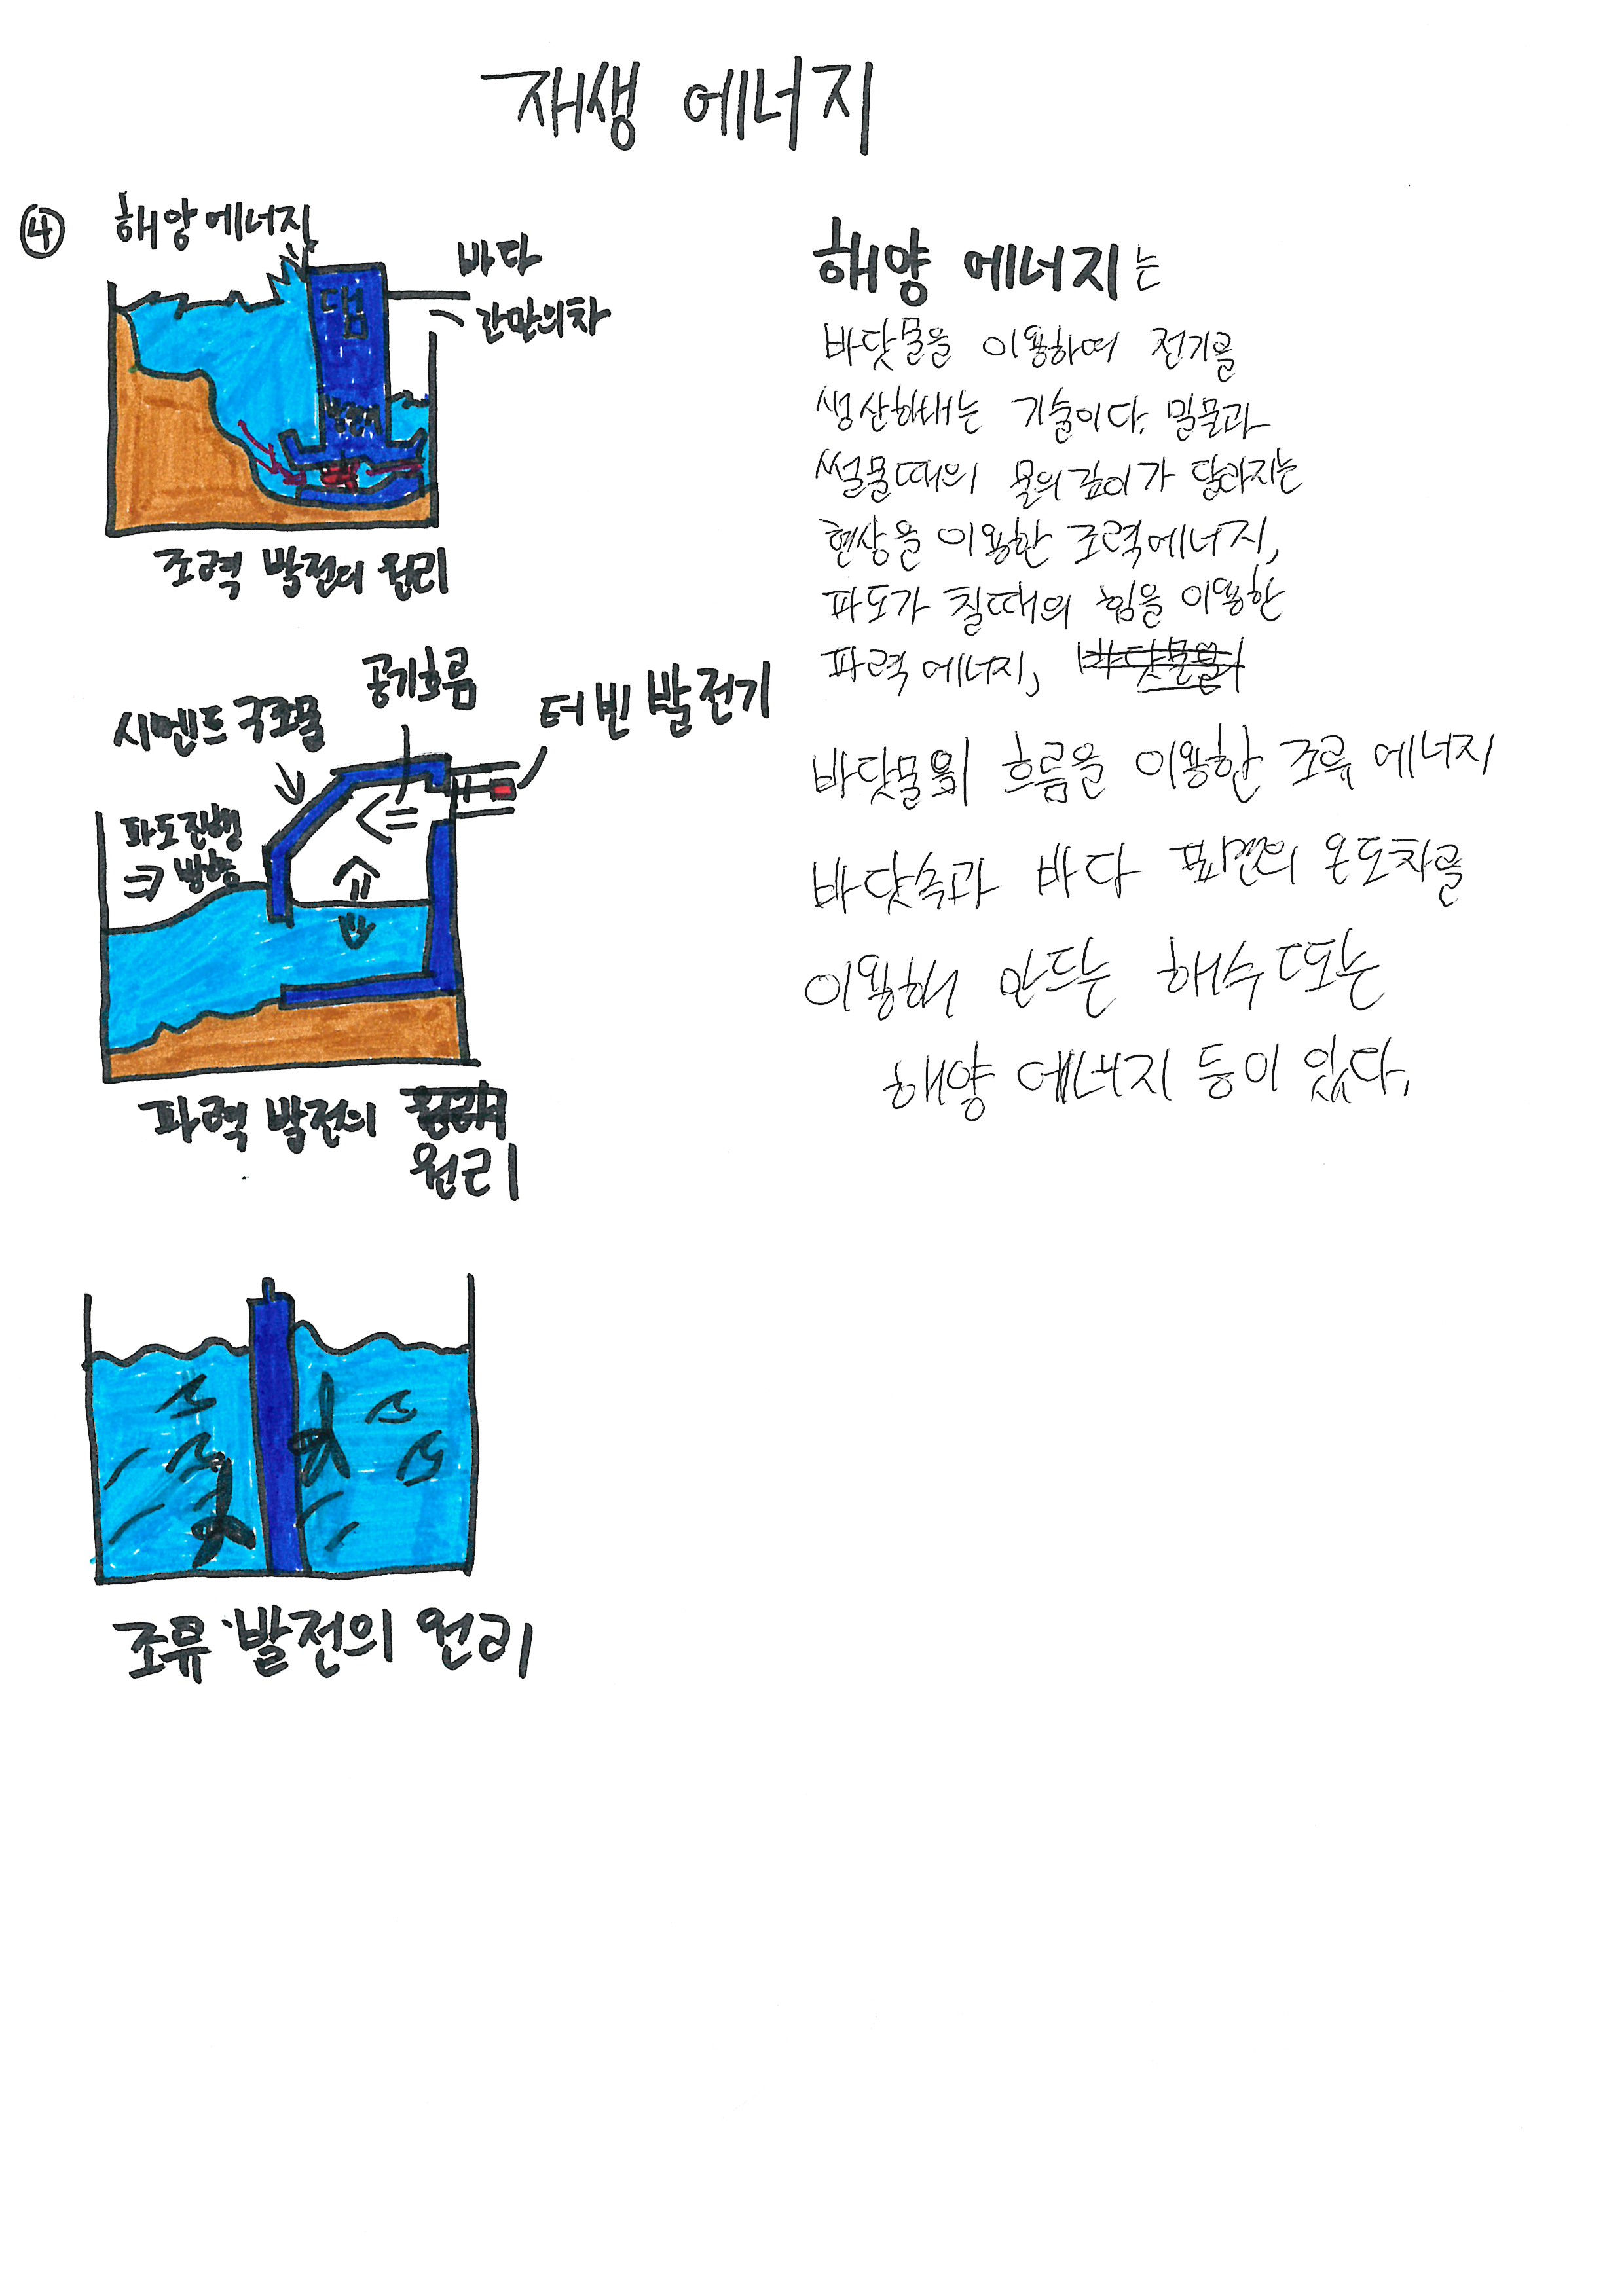 재생 에너지
④ 해양에너지
바다
간만의차
댐
발전기
조력 발전의 원리
공기흐름
시멘트 구조물
터빈 발전기
파도진행
방향
파력 발전의
원리
조류 발전의 원리
해양 에너지는
바닷물을 이용하여 전기를
생산해내는 기술이다. 밀물과
썰물때의 물의 깊이가 달라지는
현상을 이용한 조력에너지,
파도가 칠때의 힘을 이용한
파력 에너지,
바닷물의 흐름을 이용한 조류 에너지
바닷속과 바다 표면의 온도차를
이용해 만드는 해수 또는
해양 에너지 등이 있다.